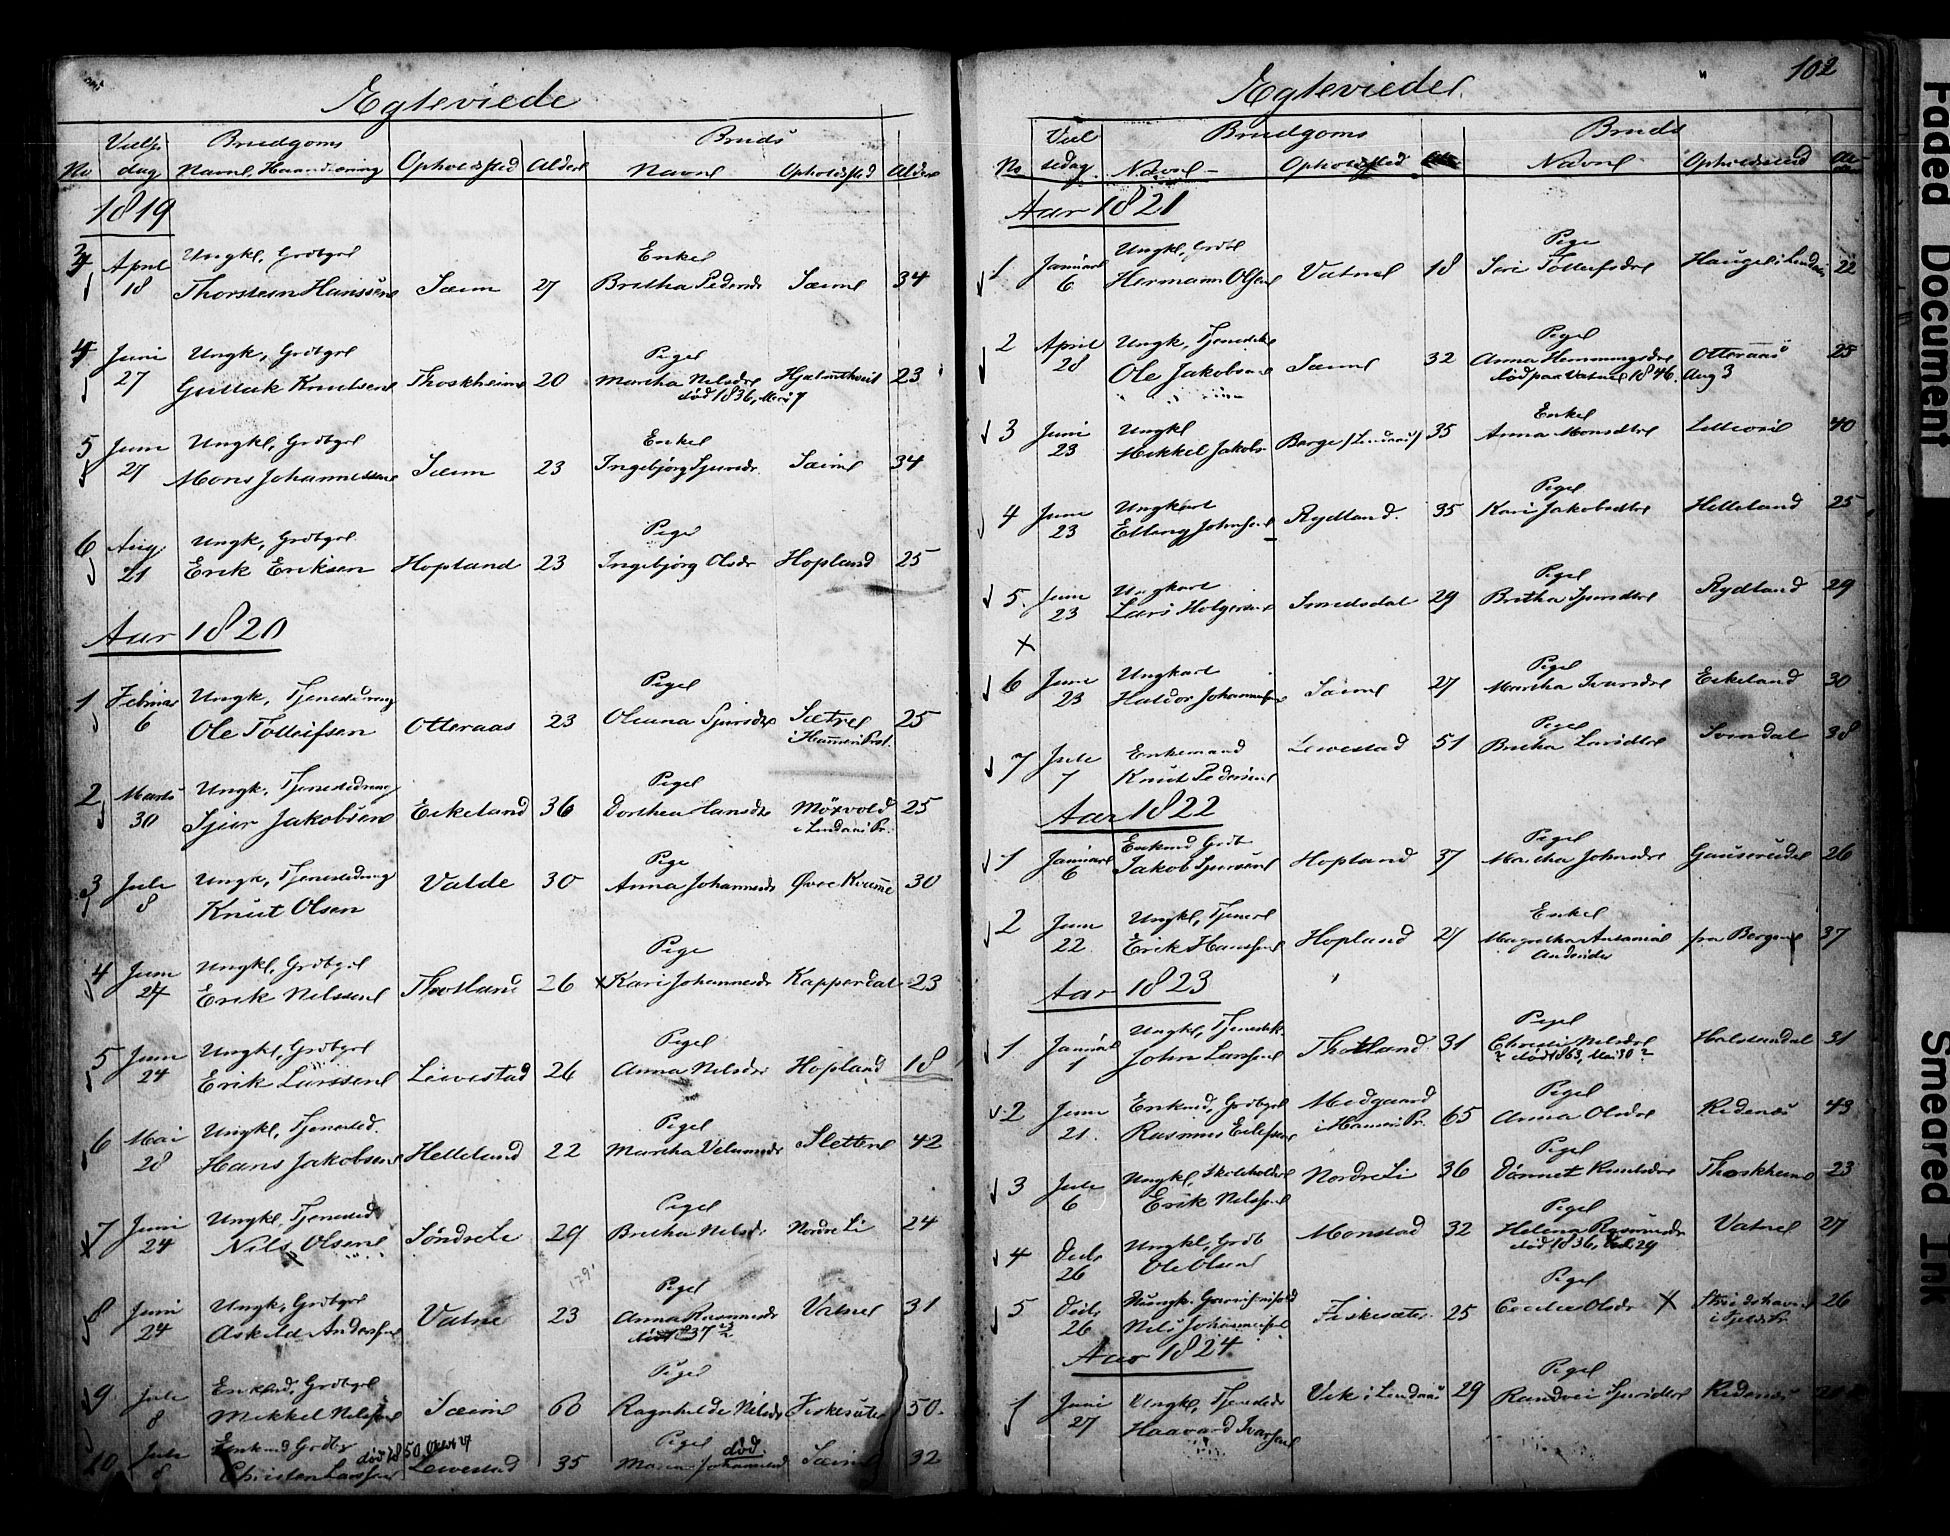 Egteviede
No Vielse dag Brudgoms Navn, Haandtering Opholdsted Alder Bruds Navn Opholdsted Alder
1819
3 April 18 Ungkl, Grdbgrl Thorstein Hanssen Sæim 27 Enkel Britha Pedersdr Sæim 34
4 Juni 27 Ungk, Grdbgrl Gullak Knudsen Thoskheim 20 Pigel Martha Nilsdr Hjelmtveit 23
død 1836, Mai 7
5 Juni 27 Ungkl, Grdbgrl Mons Johannessen Sæim 23 Enkel Ingebjørg Sjursdr Sæim 34
6 Aug. 21 Ungk, Grdbgrl Erik Eriksen Hopland 23 Pige Ingebjørg Olsdr Hopland 25
Aar 1820
1 Februar 6 Ungk, Tjenestedreng Ole Tolleifsen Otteraas 23 Pigel Oluna Sjursdr Sætre 25
i Hammer Prst.
2 Marts 30 Ungk, Tjenestedreng Sjur Jakobsen Eikeland 36 Pigel Dorthea Hansdr Möxvold 25
i Lindaas Pr.
3 Juli 8 Ungk, Tjenestedreng Knut Olsen Valde 30 Pige Anna Johannesdr Øvre Kvamme 30
4 Juni 24 Ungkl, Grdbgrl Erik Nilssen Thotland 26 Pige Kari Johannesdr Kapperdal 23
5 Juni 24 Ungkl, Grdbgrl Erik Larssen Leivestad 26 Pigel Anna Nilsdr Hopland 18
6 Mai 28 Ungkl, Tjenested. Hans Jakobsen Helleland 22 Pigel Martha Slettene 42
7 Juni 24 Ungkl, Tjenested Nils Olsen Söndre Li 29 Pigel Britha Nilsdr Nordre Li 24
8 Juni 24 Ungk, Grdbgrl Askild Anderssen Vatne 23 Pigel Anna Rasmusdr Vatne 31
død 1837
9 Juli 8 Enkmd, Grdbgrl Mikkel Nilssen Sæim 60 Pigel Ragnhilde Nilsdr Fiskesæter 50
10 Juli 8 Enkmd Grdbr Christen Larssen død 1850 Oktbr 27 Leivestad 35 Pigel død Maria Johannesd Sæim 32
Egteviede 102
No Vielsedag Brudgoms Navne Opholdsted Bruds Navne Opholdssted
Aar 1821
1 Januar 6 Ungkl, Grdbl Hermann Olsen Vatne 18 Pige Siri Tolleifsdr Hauge i Lindaas 22
2 April 28 Ungk, Tjenestekr Ole Jakobsen Sæim 32 Pigel Anna Hemmingsdr Otteraas 25
død paa Vatne 1846, Aug 3
3 Juni 23 Ungkl Mikkel Jakobs Berge /Lindaas/ 35 Enkel Anna Monsdtr 40
4 Juni 23 Ungkarl Elling Johnsen Rydland 35 Pigel Kari Jakobsdtr Helleland 25
5 Juni 23 Ungkarl Lars Holgersen Isendsdal 29 Pigel Britha Sjursdtr Rydland 29
6 Juni 23 Ungkarl Haldor Johannessen Sæim 27 Pigel Martha Ivarsdr Eikeland 30
7 Juli 7 Enkemand Knut Pedersen Leivestad 51 Pigel Britha Larsdtr 38
Aar 1822
1 Januar 6 Enkmd Grdb Jakob Sjursen Hopland 37 Pigel Martha Johnsdr 26
2 Juni 22 Ungkl, Tjenerl Erik Hanssen Hopland 27 Enkel Magretha Antamal Andersdr fra Bergen 37
Aar 1823
1 Januar 1 Ungkl, Tjenestek. John Larssen Thotland 31 Pigel Christi Nilsdr Holstendal 31
død 1863, Mai 30
2 Juni 21. Enkmd, Grdbgrl Rasmus Ellefsen Midgaard i Hammer Pr. 65 Pigel Anna Olsdr Kidenes 43
3 Juli 6 Ungkl, Skoleholder Erik Nilssen Nordre Li 36 Pigel Dönnet Knudsdr Thoskheim 23
4 Decb. 26 Ungkl, Grdb Ole Olsen Monstad 32 Pigel Helena Rasmusdr Vatne 27
død 1836, 29
5 Decb. 26 Nils Johannessen Fiskesæter 25 Pigel Cecilia Olsdr 26
Aar 1824
1 Juni 27 Ungkl, Tjenestedr Haavard Ivarsen Vik i Lindaas 29 Pigel Randvei Sjursdtr Kidenes
Faded Document
Smeared Ink